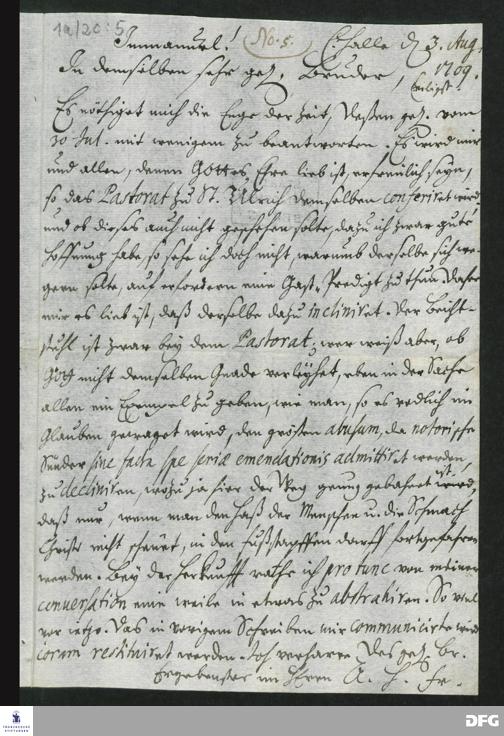 1a/20:5
Immanuel! No. 5. E. Halle d 3. Aug.
In demselben sehr gel. Bruder, 1709.
Es nöthiget mich die Enge der Zeit, deßen gel. vom
30 Jul. mit wenigem zu beantworten. Es wird mir
und allen, denen Gottes Ehre lieb ist, erfreulich seyn,
so das Pastorat zu St. Ulrich demselben conferiret wird,
und ob dieses auch nicht geschehen solte, dazu ich zwar gute
Hoffnung habe, so sehe ich doch nicht, warumb derselbe sich we-
gern solte, auf erfordern eine Gast-Predigt zu thun. Daher
mir es lieb ist, daß derselbe dazu incliniret. Der Beicht-
stuhl ist zwar bey dem Pastorat; wer weiß aber, ob
Gott nicht demselben Gnade verleyhet, eben in der Sache
allen ein Exempel zu geben, wie man, so es redlich im
Glauben gewaget wird, den großen abusum, da notorische
Sünder sine facta spe seriæ emendationis admittiret werden,
zu decliniren, wozu ja hier der Weg genug gebahnet ist,
daß nur, wenn man den Haß der Menschen u. die Schmach
Christi nicht scheuet, in den Fußstapffen darff fortgefahren
werden. Bey der Herkunfft rathe ich pro tunc von
conversation eine weile in etwas zu abstrahiren. So viel
vor ietzo. Das in vorigem Schreiben mir communicirte wird
coram restituiret werden. Ich verharre Des gel. Br.
Ergebenster im Herrn A. H. Fr.
FRANCKESCHE STIFTUNGEN
DFG